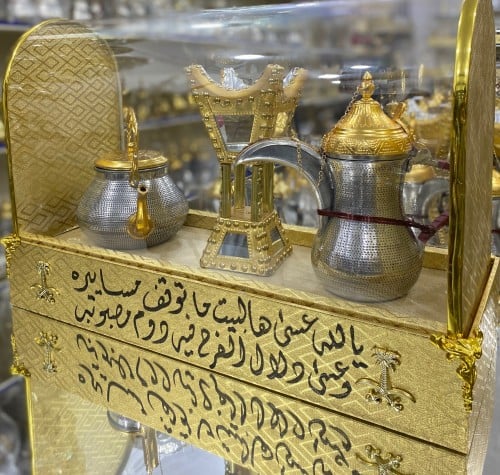 يالله عسى هالبيت ما توقف مساييره
وعسى دلال الفرح فيه دوم مصبوبه